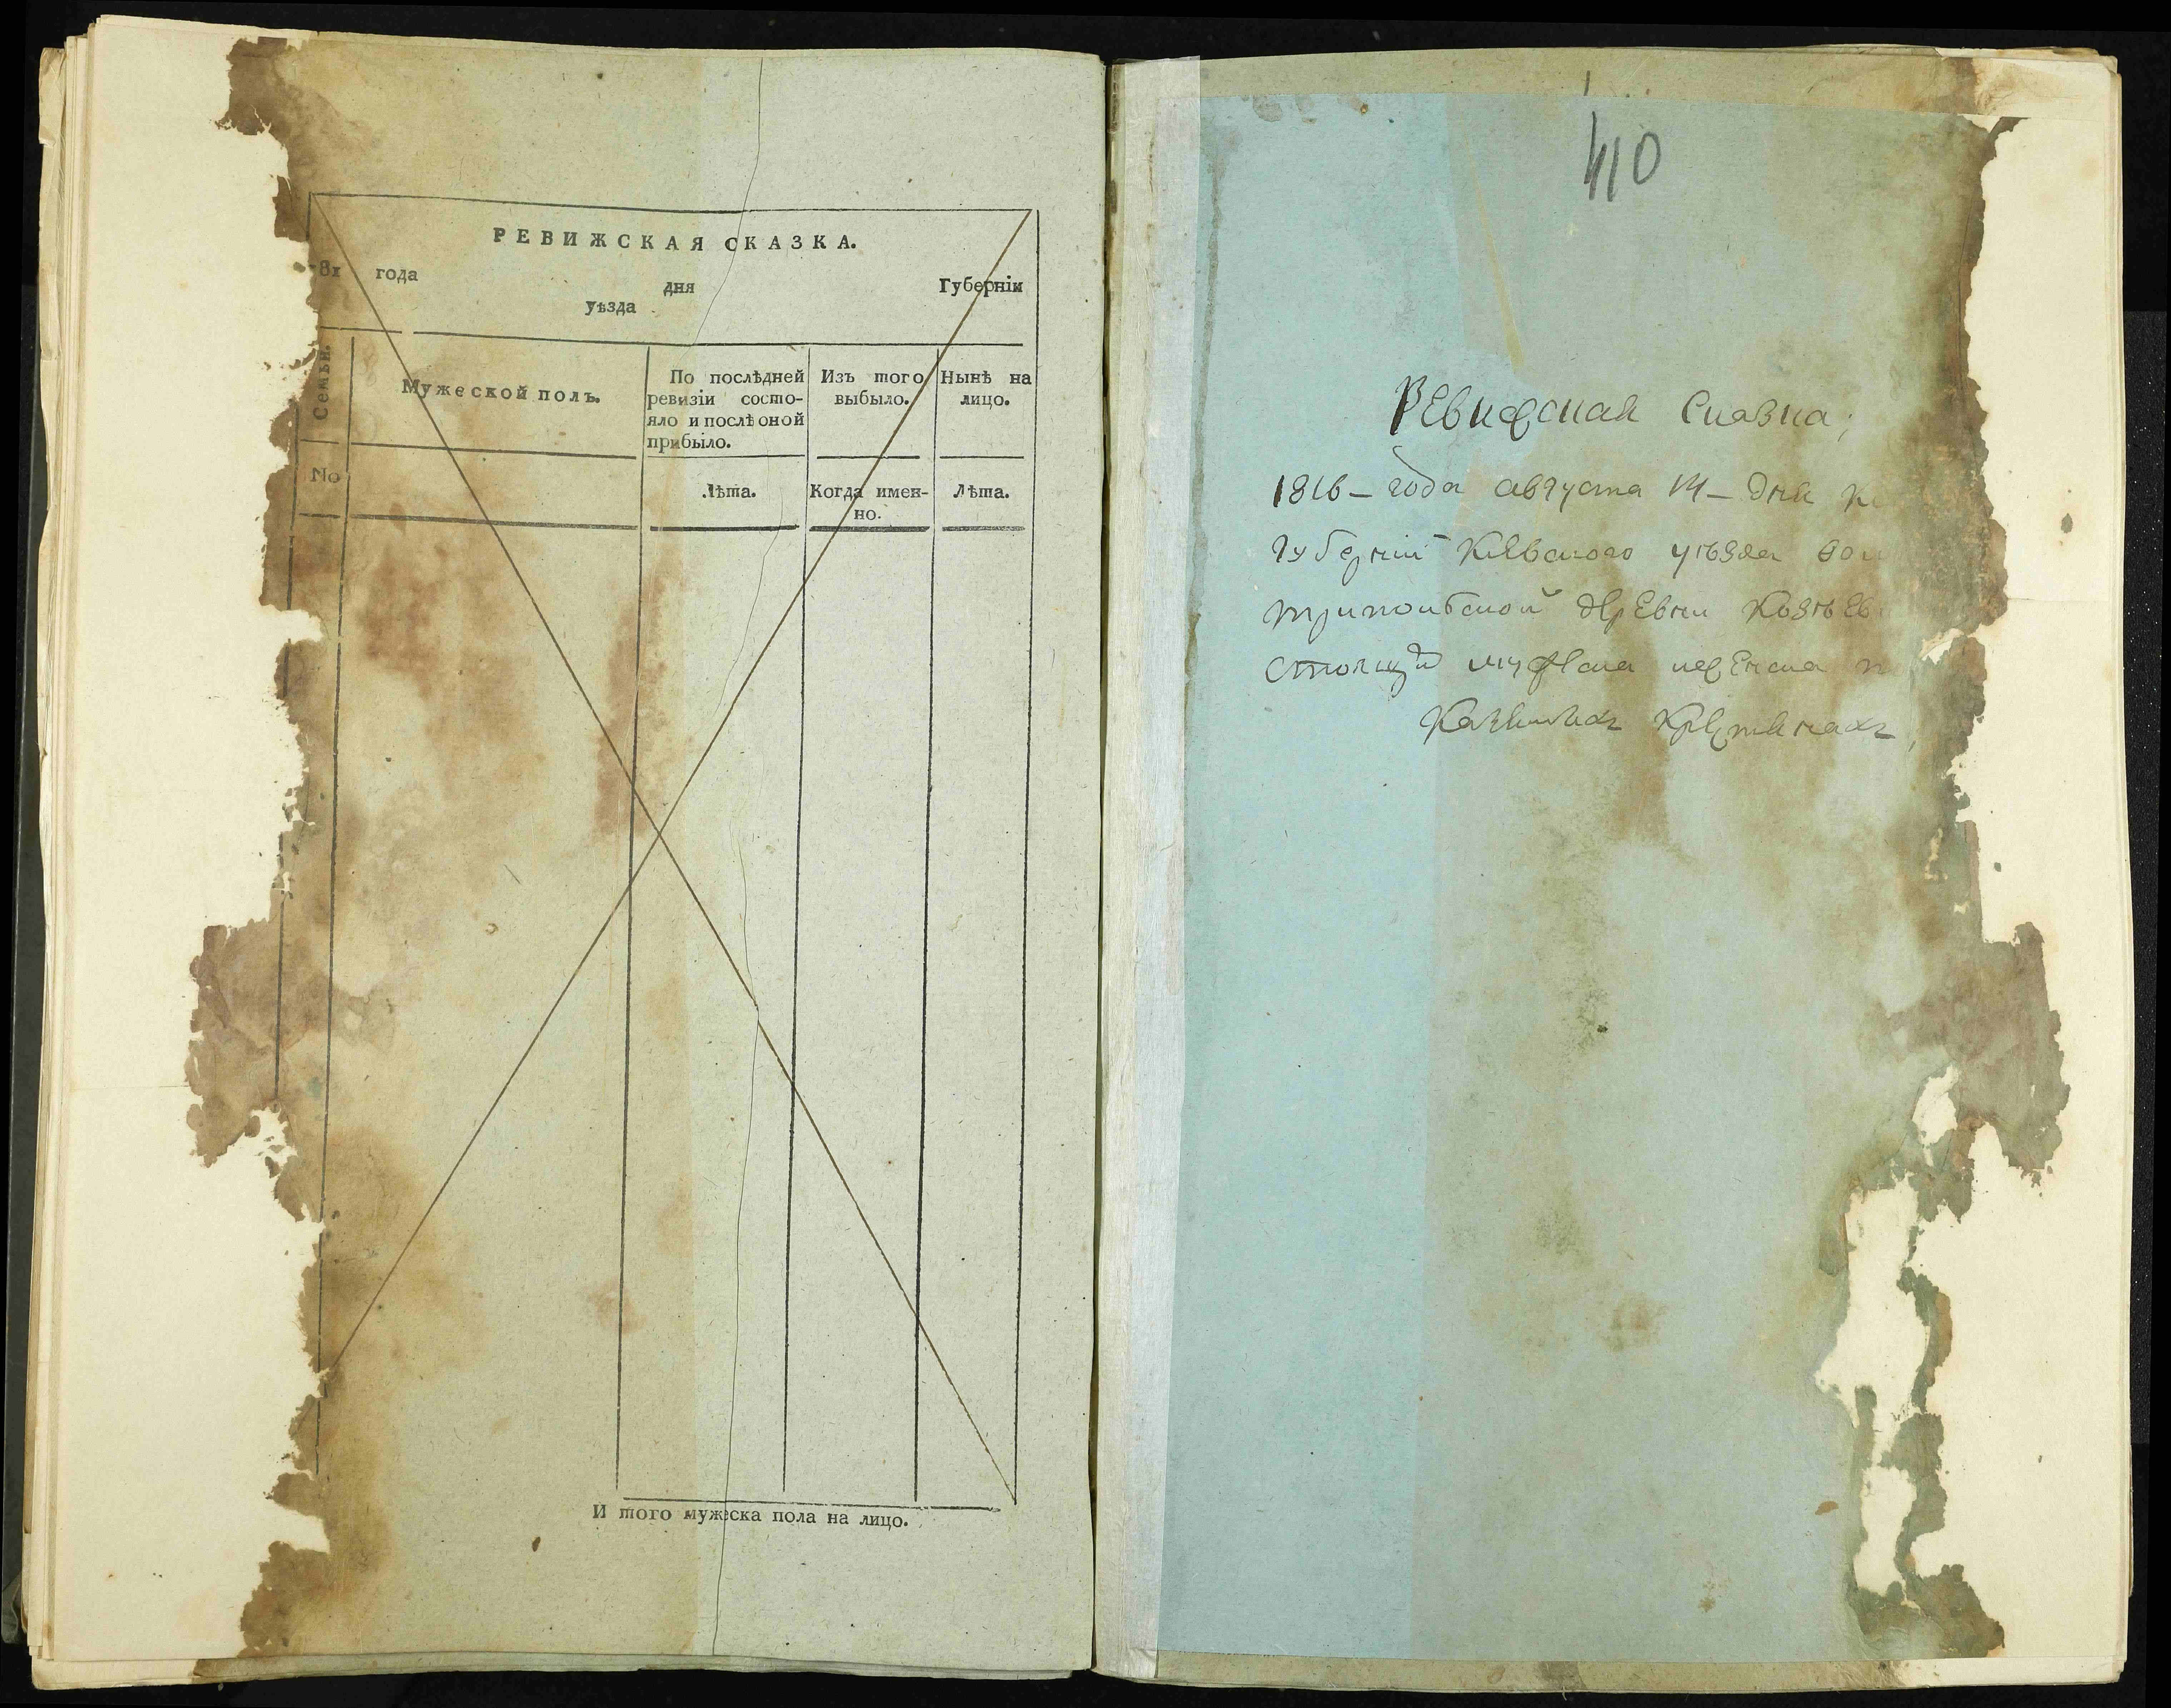 РЕВИЖСКАЯ СКАЗКА.
81 года
дня Губерніи
уѣзда
Семьи.
Мужеской полъ.
По послѣдней
ревизіи состо-
яло и послѣ оной
прибыло.
Изъ того
выбыло.
Нынѣ на
лицо.
No
Лѣта.
Когда имен-
но.
Лѣта.
И того мужеска пола на лицо.
410
Ревижская Сказка;
1816 – года августа 14 – дня
губерніи Киевского уѣзда
трипольской деревни
мужеска женска
Казенных Крестьянах